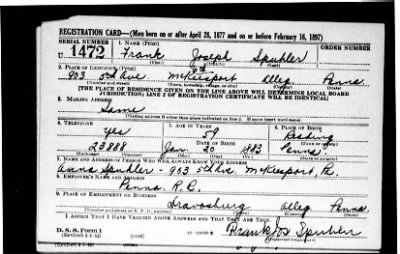 REGISTRATION CARD—(Men born on or after April 28, 1877 and on or before February 16, 1897)
SERIAL NUMBER
1. NAME (Print)
ORDER NUMBER
U 1472
Frank Joseph Spuhler
(First) (Middle) (Last)
2. PLACE OF RESIDENCE (Print)
903 5th Ave. McKeesport Alleg Penna
[THE PLACE OF RESIDENCE GIVEN ON THE LINE ABOVE WILL DETERMINE LOCAL BOARD
JURISDICTION; LINE 2 OF REGISTRATION CERTIFICATE WILL BE IDENTICAL]
3. MAILING ADDRESS
Same
[Mailing address if other than place indicated on line 2. If same insert word same]
4. TELEPHONE
5. AGE IN YEARS
6. PLACE OF BIRTH
Yes
59
DATE OF BIRTH
23888
Jan. 20 1883
Penna.
7. NAME AND ADDRESS OF PERSON WHO WILL ALWAYS KNOW YOUR ADDRESS
Anna Spuhler - 903 5th Ave. McKeesport, Pa.
8. EMPLOYER'S NAME AND ADDRESS
Penna. R.R.
9. PLACE OF EMPLOYMENT OR BUSINESS
Dravosburg Alleg Penna.
I AFFIRM THAT I HAVE VERIFIED ABOVE ANSWERS AND THAT THEY ARE TRUE.
D. S. S. Form 1
Frank Jos Spuhler